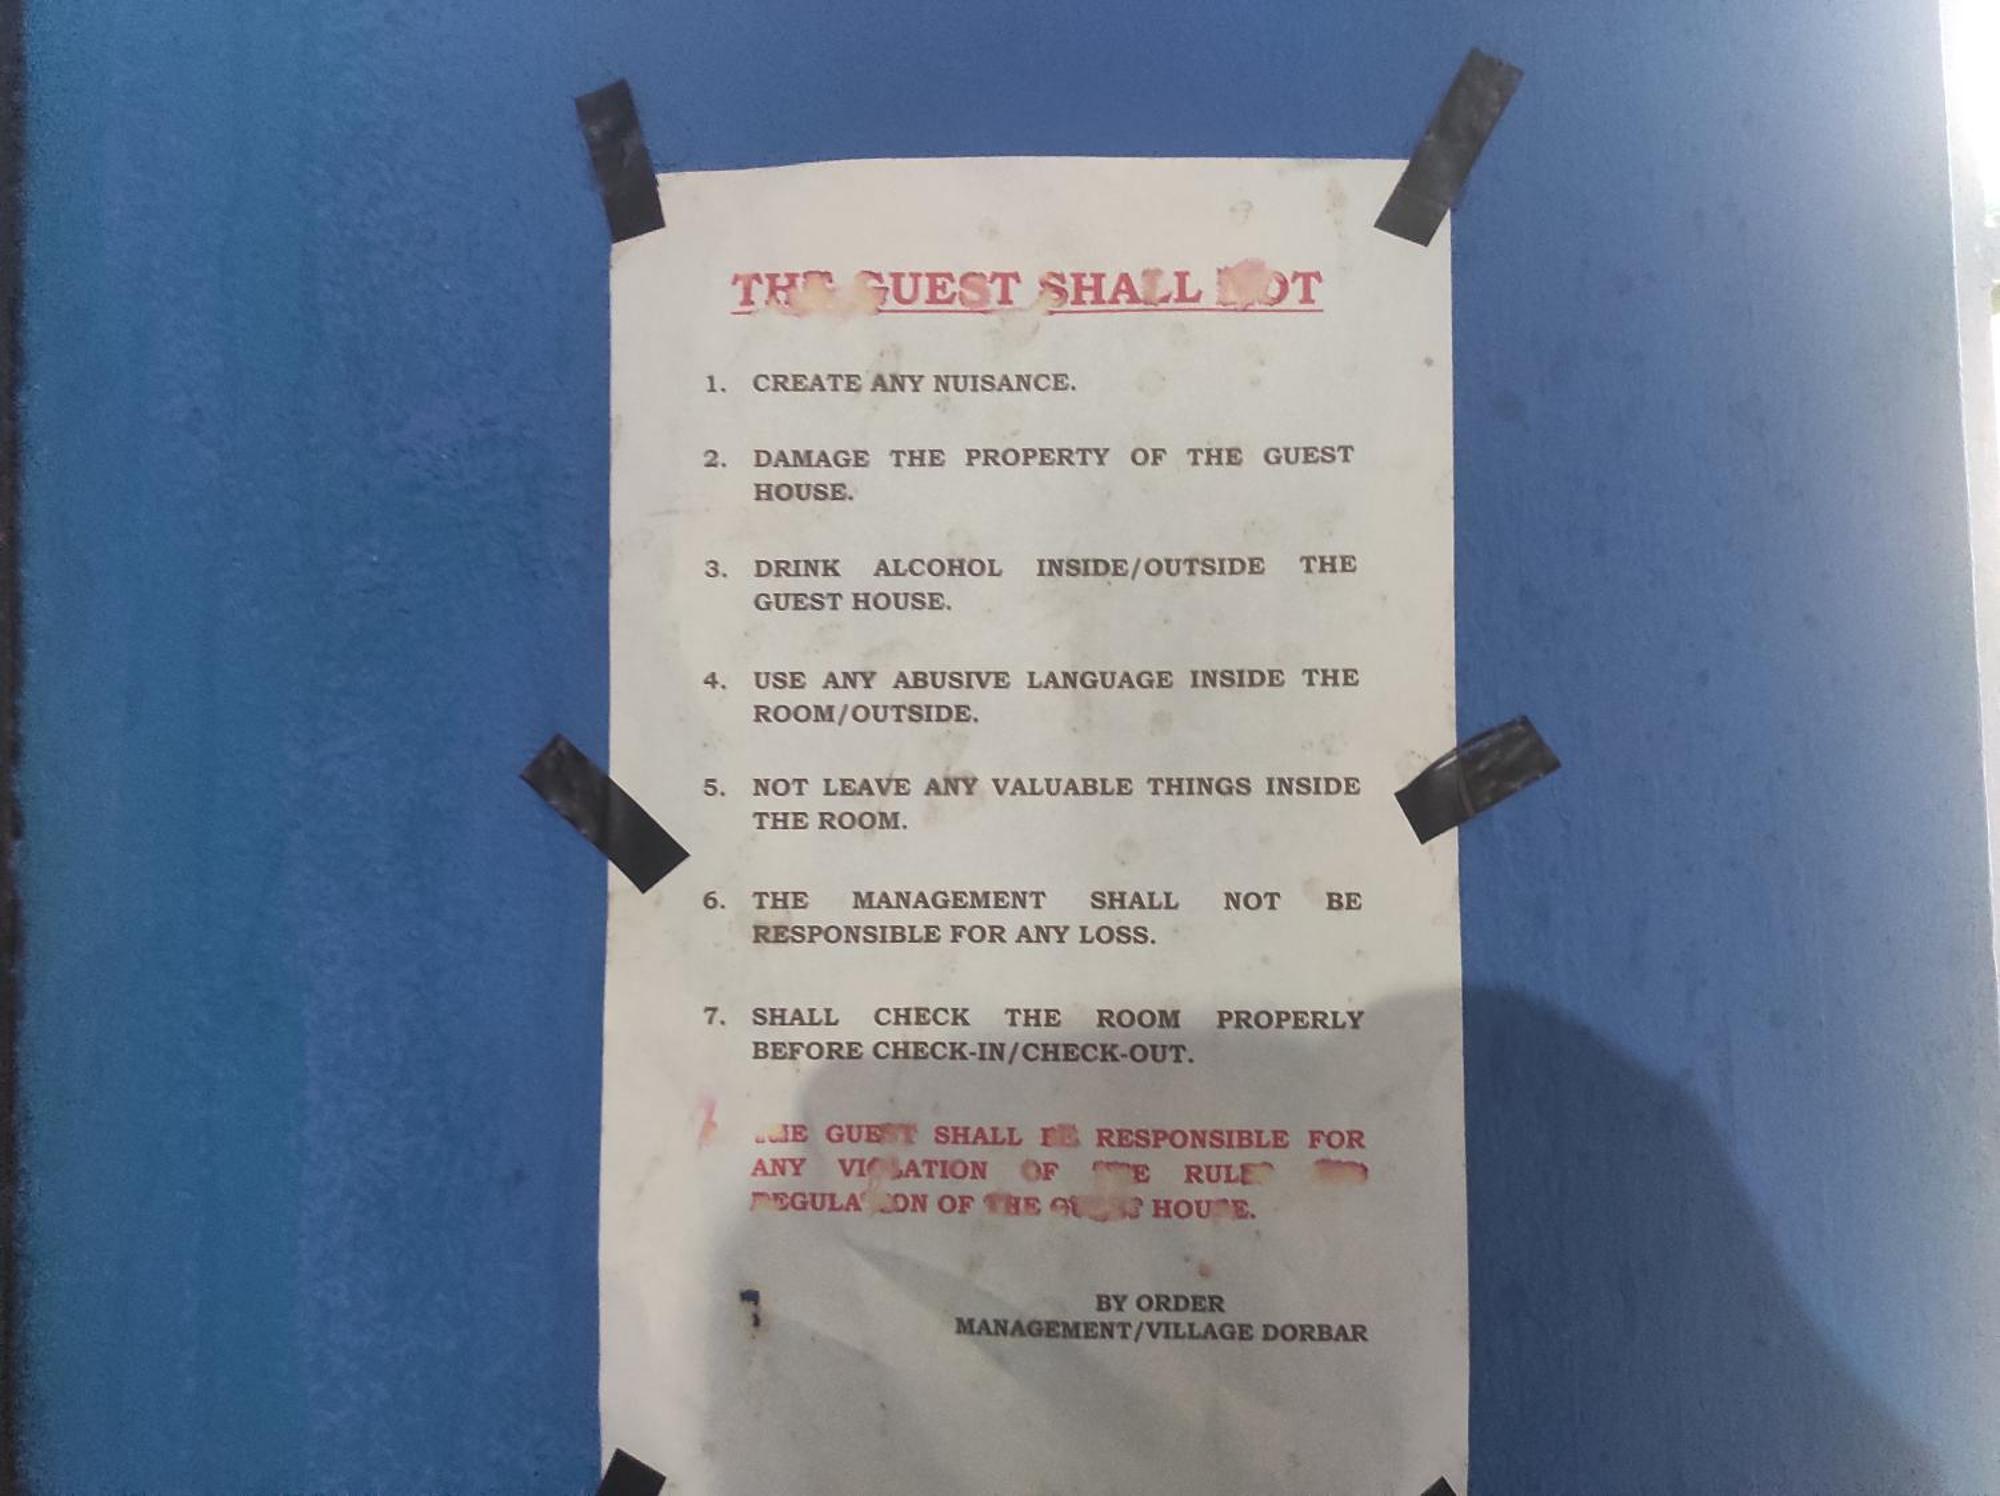 THE GUEST SHALL NOT
1. CREATE ANY NUISANCE.
2. DAMAGE THE PROPERTY OF THE GUEST
HOUSE.
3. DRINK ALCOHOL INSIDE/OUTSIDE THE
GUEST HOUSE.
4. USE ANY ABUSIVE LANGUAGE INSIDE THE
ROOM/OUTSIDE.
5. NOT LEAVE ANY VALUABLE THINGS INSIDE
THE ROOM.
6. THE MANAGEMENT SHALL NOT BE
RESPONSIBLE FOR ANY LOSS.
7. SHALL CHECK THE ROOM PROPERLY
BEFORE CHECK-IN/CHECK-OUT.
THE GUEST SHALL BE RESPONSIBLE FOR
ANY VIOLATION OF THE RULES
REGULATION OF THE GUEST HOUSE.
BY ORDER
MANAGEMENT/VILLAGE DORBAR